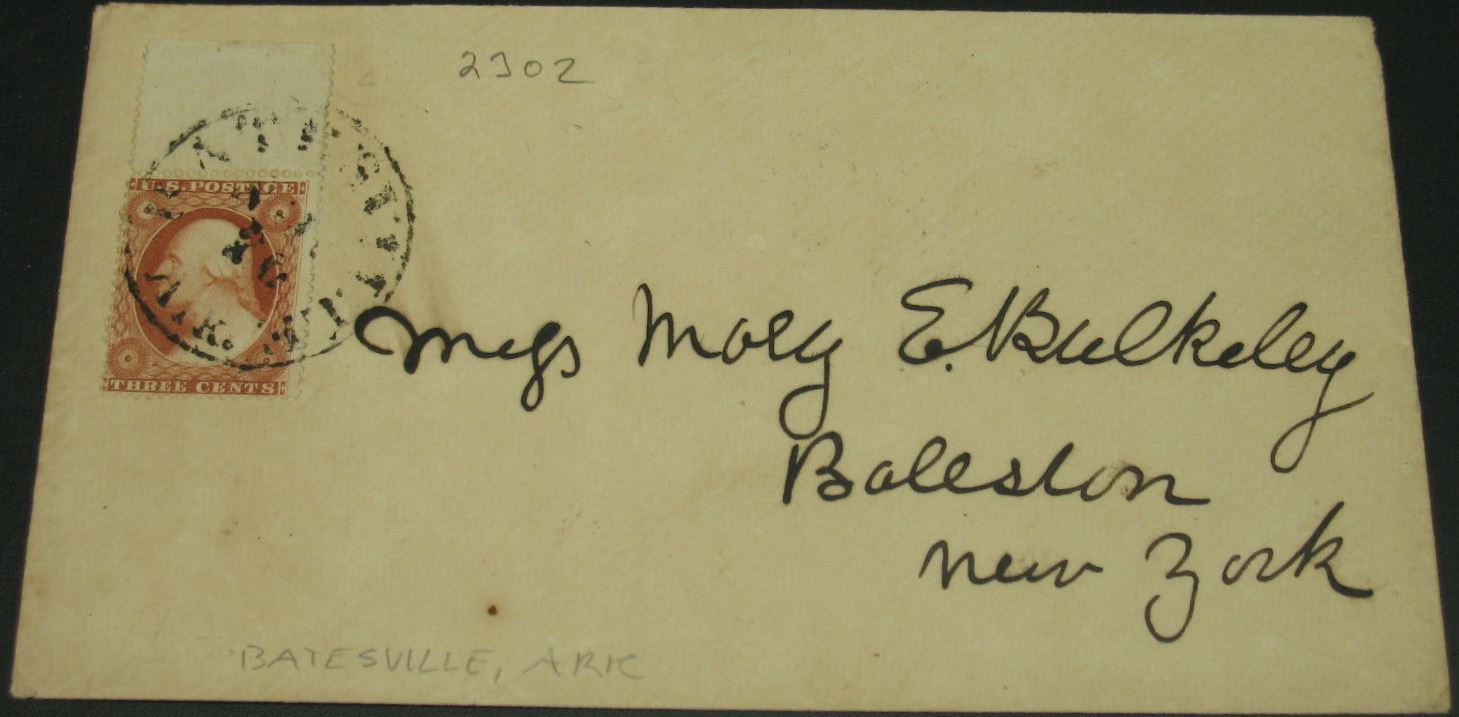 2302
U.S. POSTAGE
THREE CENTS
BATESVILLE
ARK
Miss Mary E. Bulkeley
Balleston
New York
BATESVILLE, ARK